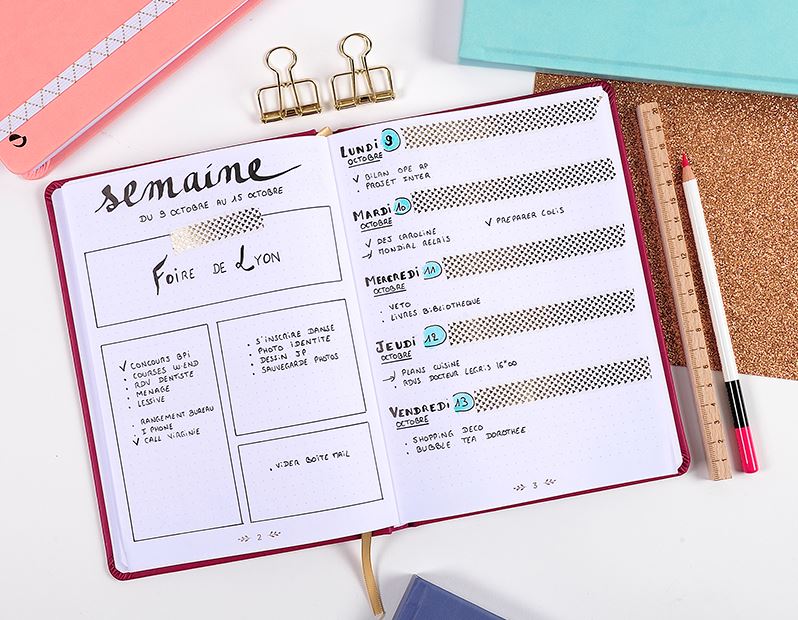 semaine
DU 9 OCTOBRE AU 15 OCTOBRE
FOIRE DE LYON
✓ CONCOURS BPI
• COURSES W.END
• RDV DENTISTE
• MENAGE
• LESSIVE
• RANGEMENT BUREAU
• I PHONE
✓ CALL VIRGINIE
• S'INSCRIRE DANSE
• PHOTO IDENTITE
• DESSIN JP
• SAUVEGARDE PHOTOS
• VIDER BOÎTE MAIL
2
LUNDI 9
OCTOBRE
✓ BILAN OPE RP
• PROJET INTER
MARDI 10
OCTOBRE
✓ DEJ CAROLINE
→ MONDIAL RELAIS
✓ PREPARER COLIS
MERCREDI 11
OCTOBRE
• VETO
• LIVRES BIBLIOTHEQUE
JEUDI 12
OCTOBRE
→ PLANS CUISINE
• RDVS DOCTEUR LEGRIS 16H00
VENDREDI 13
OCTOBRE
• SHOPPING DECO
• BUBBLE TEA DOROTHEE
3